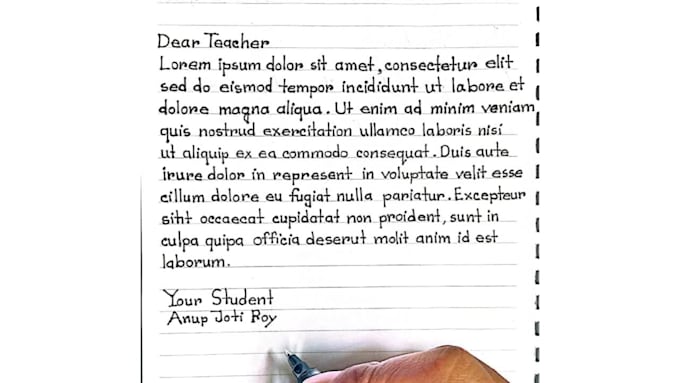 Dear Teacher
Lorem ipsum dolor sit amet, consectetur elit
sed do eismod tempor incididunt ut labore et
dolore magna aliqua. Ut enim ad minim veniam
quis nostrud exercitation ullamco laboris nisi
ut aliquip ex ea commodo consequat. Duis aute
irure dolor in represent in voluptate velit esse
cillum dolore eu fugiat nulla pariatur. Excepteur
siht occaecat cupidatat non proident, sunt in
culpa quipa officia deserut molit anim id est
laborum.
Your Student
Anup Joti Roy